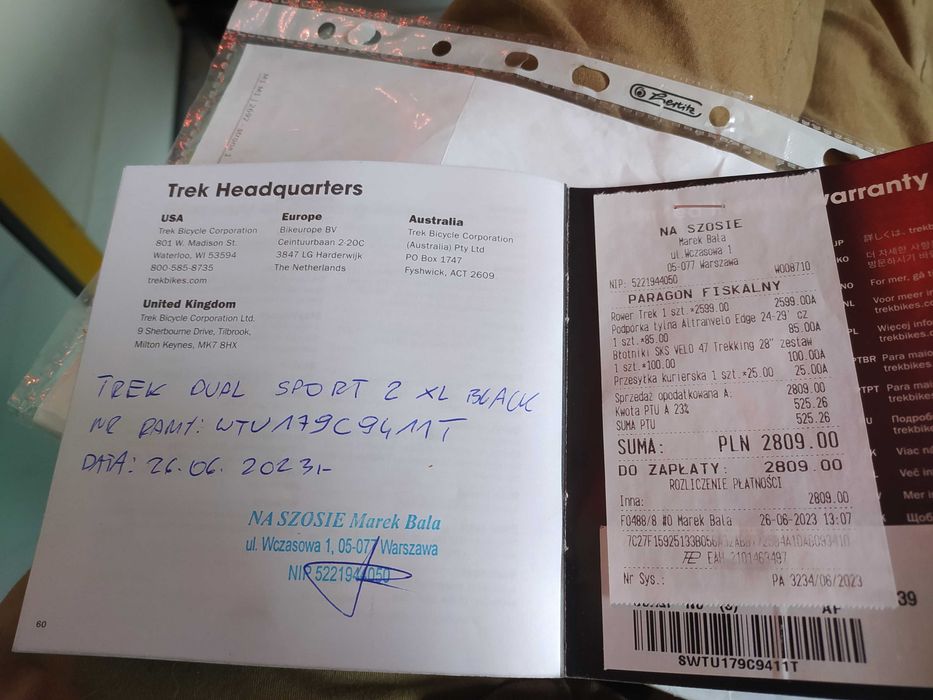 Herlitz
Trek Headquarters
USA
Trek Bicycle Corporation
801 W. Madison St.
Waterloo, WI 53594
800-585-8735
trekbikes.com
Europe
Bikeurope BV
Ceintuurbaan 2-20C
3847 LG Harderwijk
The Netherlands
Australia
Trek Bicycle Corporation
(Australia) Pty Ltd
PO Box 1747
Fyshwick, ACT 2609
United Kingdom
Trek Bicycle Corporation Ltd.
9 Sherbourne Drive, Tilbrook,
Milton Keynes, MK7 8HX
TREK DUAL SPORT 2 XL BLACK
NR RAMY: WTU179C9411T
DATA: 26.06.2023r
NA SZOSIE Marek Bala
ul. Wczasowa 1, 05-077 Warszawa
NIP 5221944050
60
NA SZOSIE
Marek Bala
ul.Wczasowa 1
05-077 Warszawa
NIP: 5221944050 W008710
PARAGON FISKALNY
Rower Trek 1 szt.*2599.00 2599.00A
Podpórka tylna Altranvelo Edge 24-29' cz
1 szt.*85.00 85.00A
Błotniki SKS VELO 47 Trekking 28" zestaw
1 szt.*100.00 100.00A
Przesyłka kurierska 1 szt.*25.00 25.00A
Sprzedaż opodatkowana A: 2809.00
Kwota PTU A 23% 525.26
SUMA PTU 525.26
SUMA: PLN 2809.00
DO ZAPŁATY: 2809.00
ROZLICZENIE PŁATNOŚCI
Inna: 2809.00
F0488/8 #0 Marek Bala 26-06-2023 13:07
EAH 2101463497
Nr Sys.: PA 3234/06/2023
warranty
JP
KO
NO
NL
PL
PTBR
PTPT
For mer, gå
Voor meer in
trekbikes.co
Więcej info
trekbikes.
Para maio
trekbikes
Para mai
trekbike
Подроб
trekbike
Viac ná
Več in
Mer i
Щоб
39
AP
SWTU179C9411T